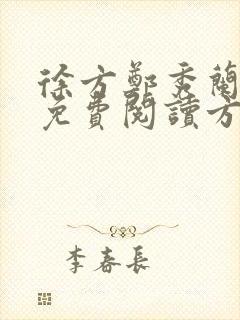 徐方鄭秀蘭
免費閱讀方
李春長